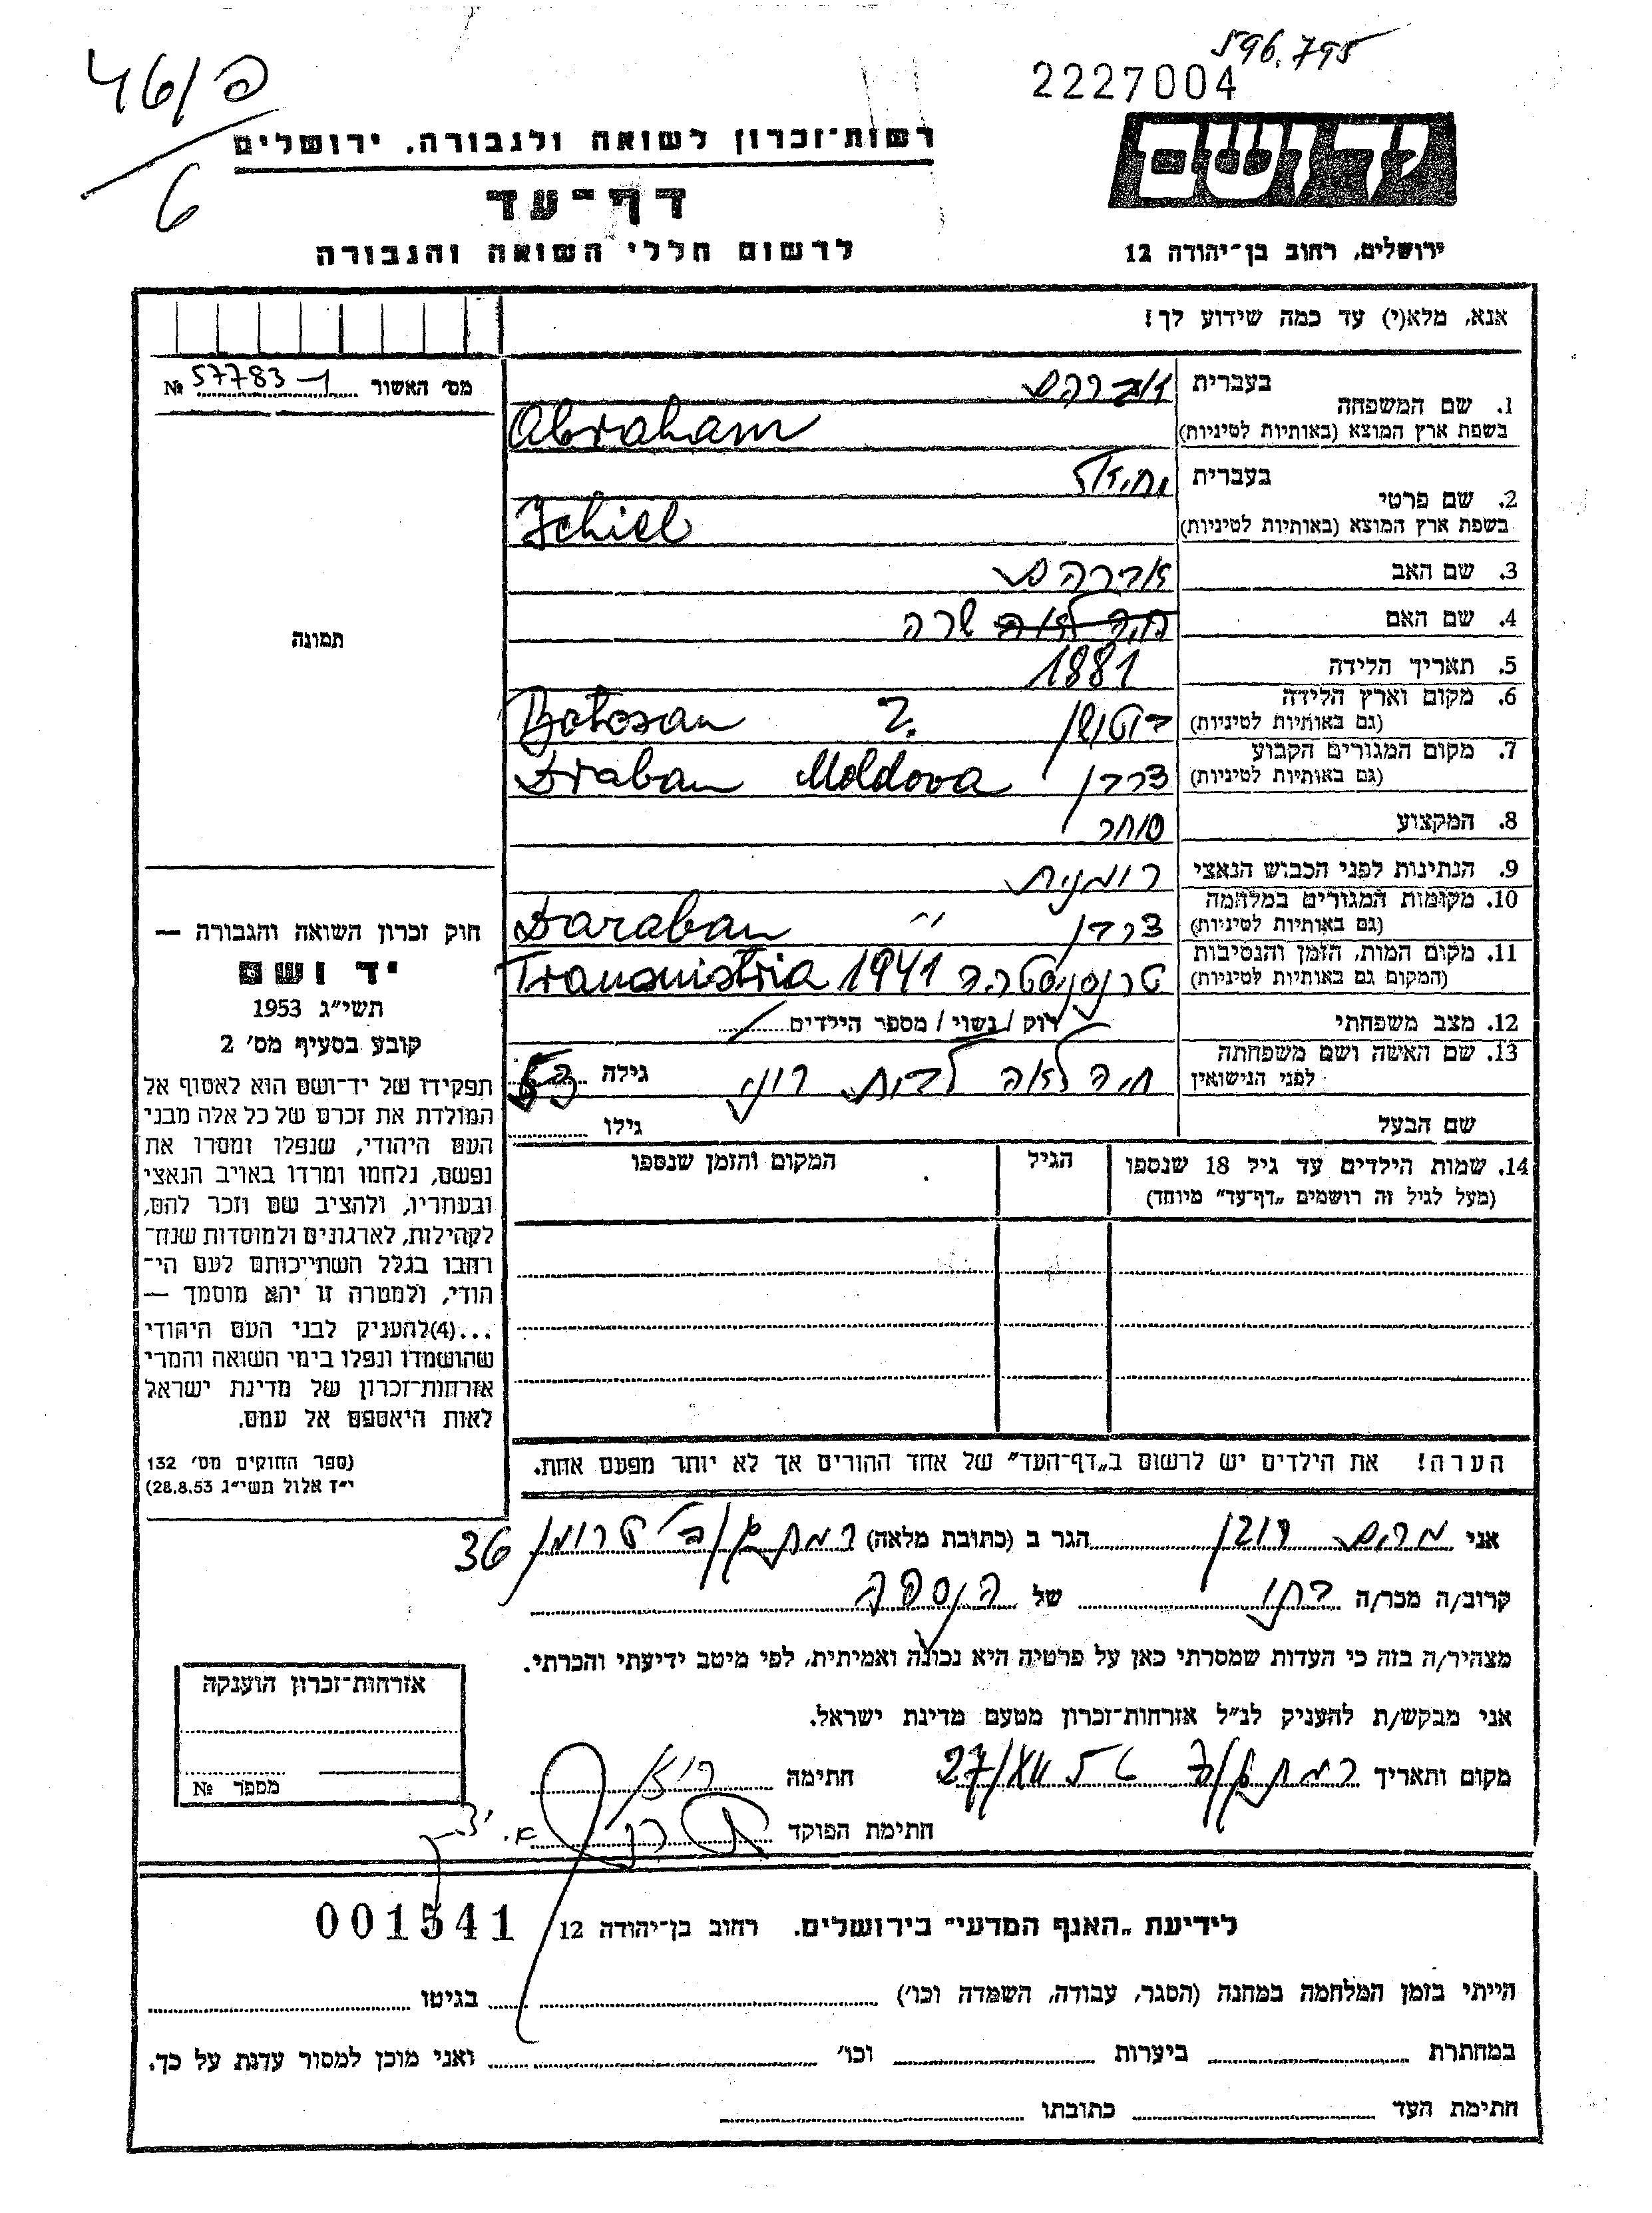 596.795
2227004
46/פ
6
יד ושם
רשות־זכרון לשואה ולגבורה. ירושלים
דף־עד
לרשום חללי השואה והגבורה
ירושלים, רחוב בן־יהודה 12
אנא, מלא(י) עד כמה שידוע לך!
מס׳ האשור 57783-1 №
תמונה
1. שם המשפחה
בעברית אברהם
בשפת ארץ המוצא (באותיות לטיניות) Abraham
2. שם פרטי
בעברית יחיאל
בשפת ארץ המוצא (באותיות לטיניות) Jchiel
3. שם האב אברהם
4. שם האם שרה
5. תאריך הלידה 1881
6. מקום וארץ הלידה
(גם באותיות לטיניות) בוטושן ?. Botosan
7. מקום המגורים הקבוע
(גם באותיות לטיניות) דרבן Draban Moldova
8. המקצוע סוחר
9. הנתינות לפני הכבוש הנאצי רומנית
10. מקומות המגורים במלחמה
(גם באותיות לטיניות) דרבן " Daraban
11. מקום המות, הזמן והנסיבות
(המקום גם באותיות לטיניות) טרנסניסטריה 1941 Transnistria
12. מצב משפחתי רוק / נשוי / מספר הילדים
13. שם האשה ושם משפחתה
לפני הנישואין חיה לאה לבית גילה
שם הבעל גילו
14. שמות הילדים עד גיל 18 שנספו
(מעל לגיל זה רושמים „דף־עד״ מיוחד)
הגיל
המקום והזמן שנספו
הערה! את הילדים יש לרשום ב„דף־העד״ של אחד ההורים אך לא יותר מפעם אחת.
חוק זכרון השואה והגבורה —
יד ושם
תשי״ג 1953
קובע בסעיף מס׳ 2
תפקידו של יד־ושם הוא לאסוף אל
המולדת את זכרם של כל אלה מבני
העם היהודי, שנפלו ומסרו את
נפשם, נלחמו ומרדו באויב הנאצי
ובעוזריו, ולהציב שם וזכר להם,
לקהילות, לארגונים ולמוסדות שנח־
רחבו בגלל השתייכותם לעם הי־
הודי, ולמטרה זו יהא מוסמך —
...(4)להעניק לבני העם היהודי
שהושמדו ונפלו בימי השואה והמרי
אזרחות־זכרון של מדינת ישראל
לאות היאספם אל עמם.
(ספר החוקים מס׳ 132
י״ז אלול תשי״ג 28.8.53)
אני מרים הגר ב (כתובת מלאה) 36
קרוב/ה מכר/ה של הנספה
מצהיר/ה בזה כי העדות שמסרתי כאן על פרטיה היא נכונה ואמיתית, לפי מיטב ידיעתי והכרתי.
אני מבקש/ת להעניק לנ״ל אזרחות־זכרון מטעם מדינת ישראל.
מקום ותאריך חתימה
חתימת הפוקד
אזרחות־זכרון הוענקה
מספר №
לידיעת „האגף המדעי״ בירושלים. רחוב בן־יהודה 12 001541
הייתי בזמן המלחמה במחנה (הסגר, עבודה, השמדה וכו׳) בגיטו
במחתרת ביערות וכו׳ ואני מוכן למסור עדות על כך.
חתימת העד כתובתו